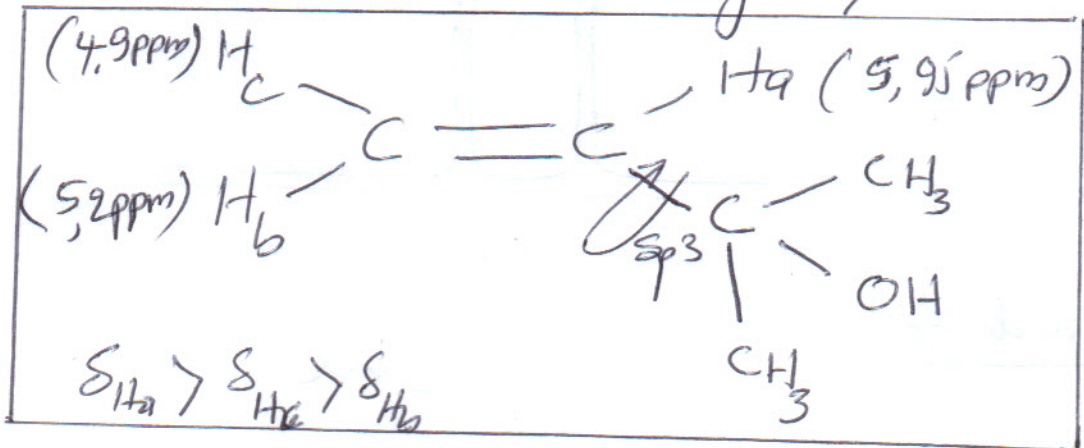 (4,9ppm) Hc
C = C
Ha (5,95 ppm)
(5,2ppm) Hb
sp3
C
CH3
OH
CH3
δHa > δHc > δHb